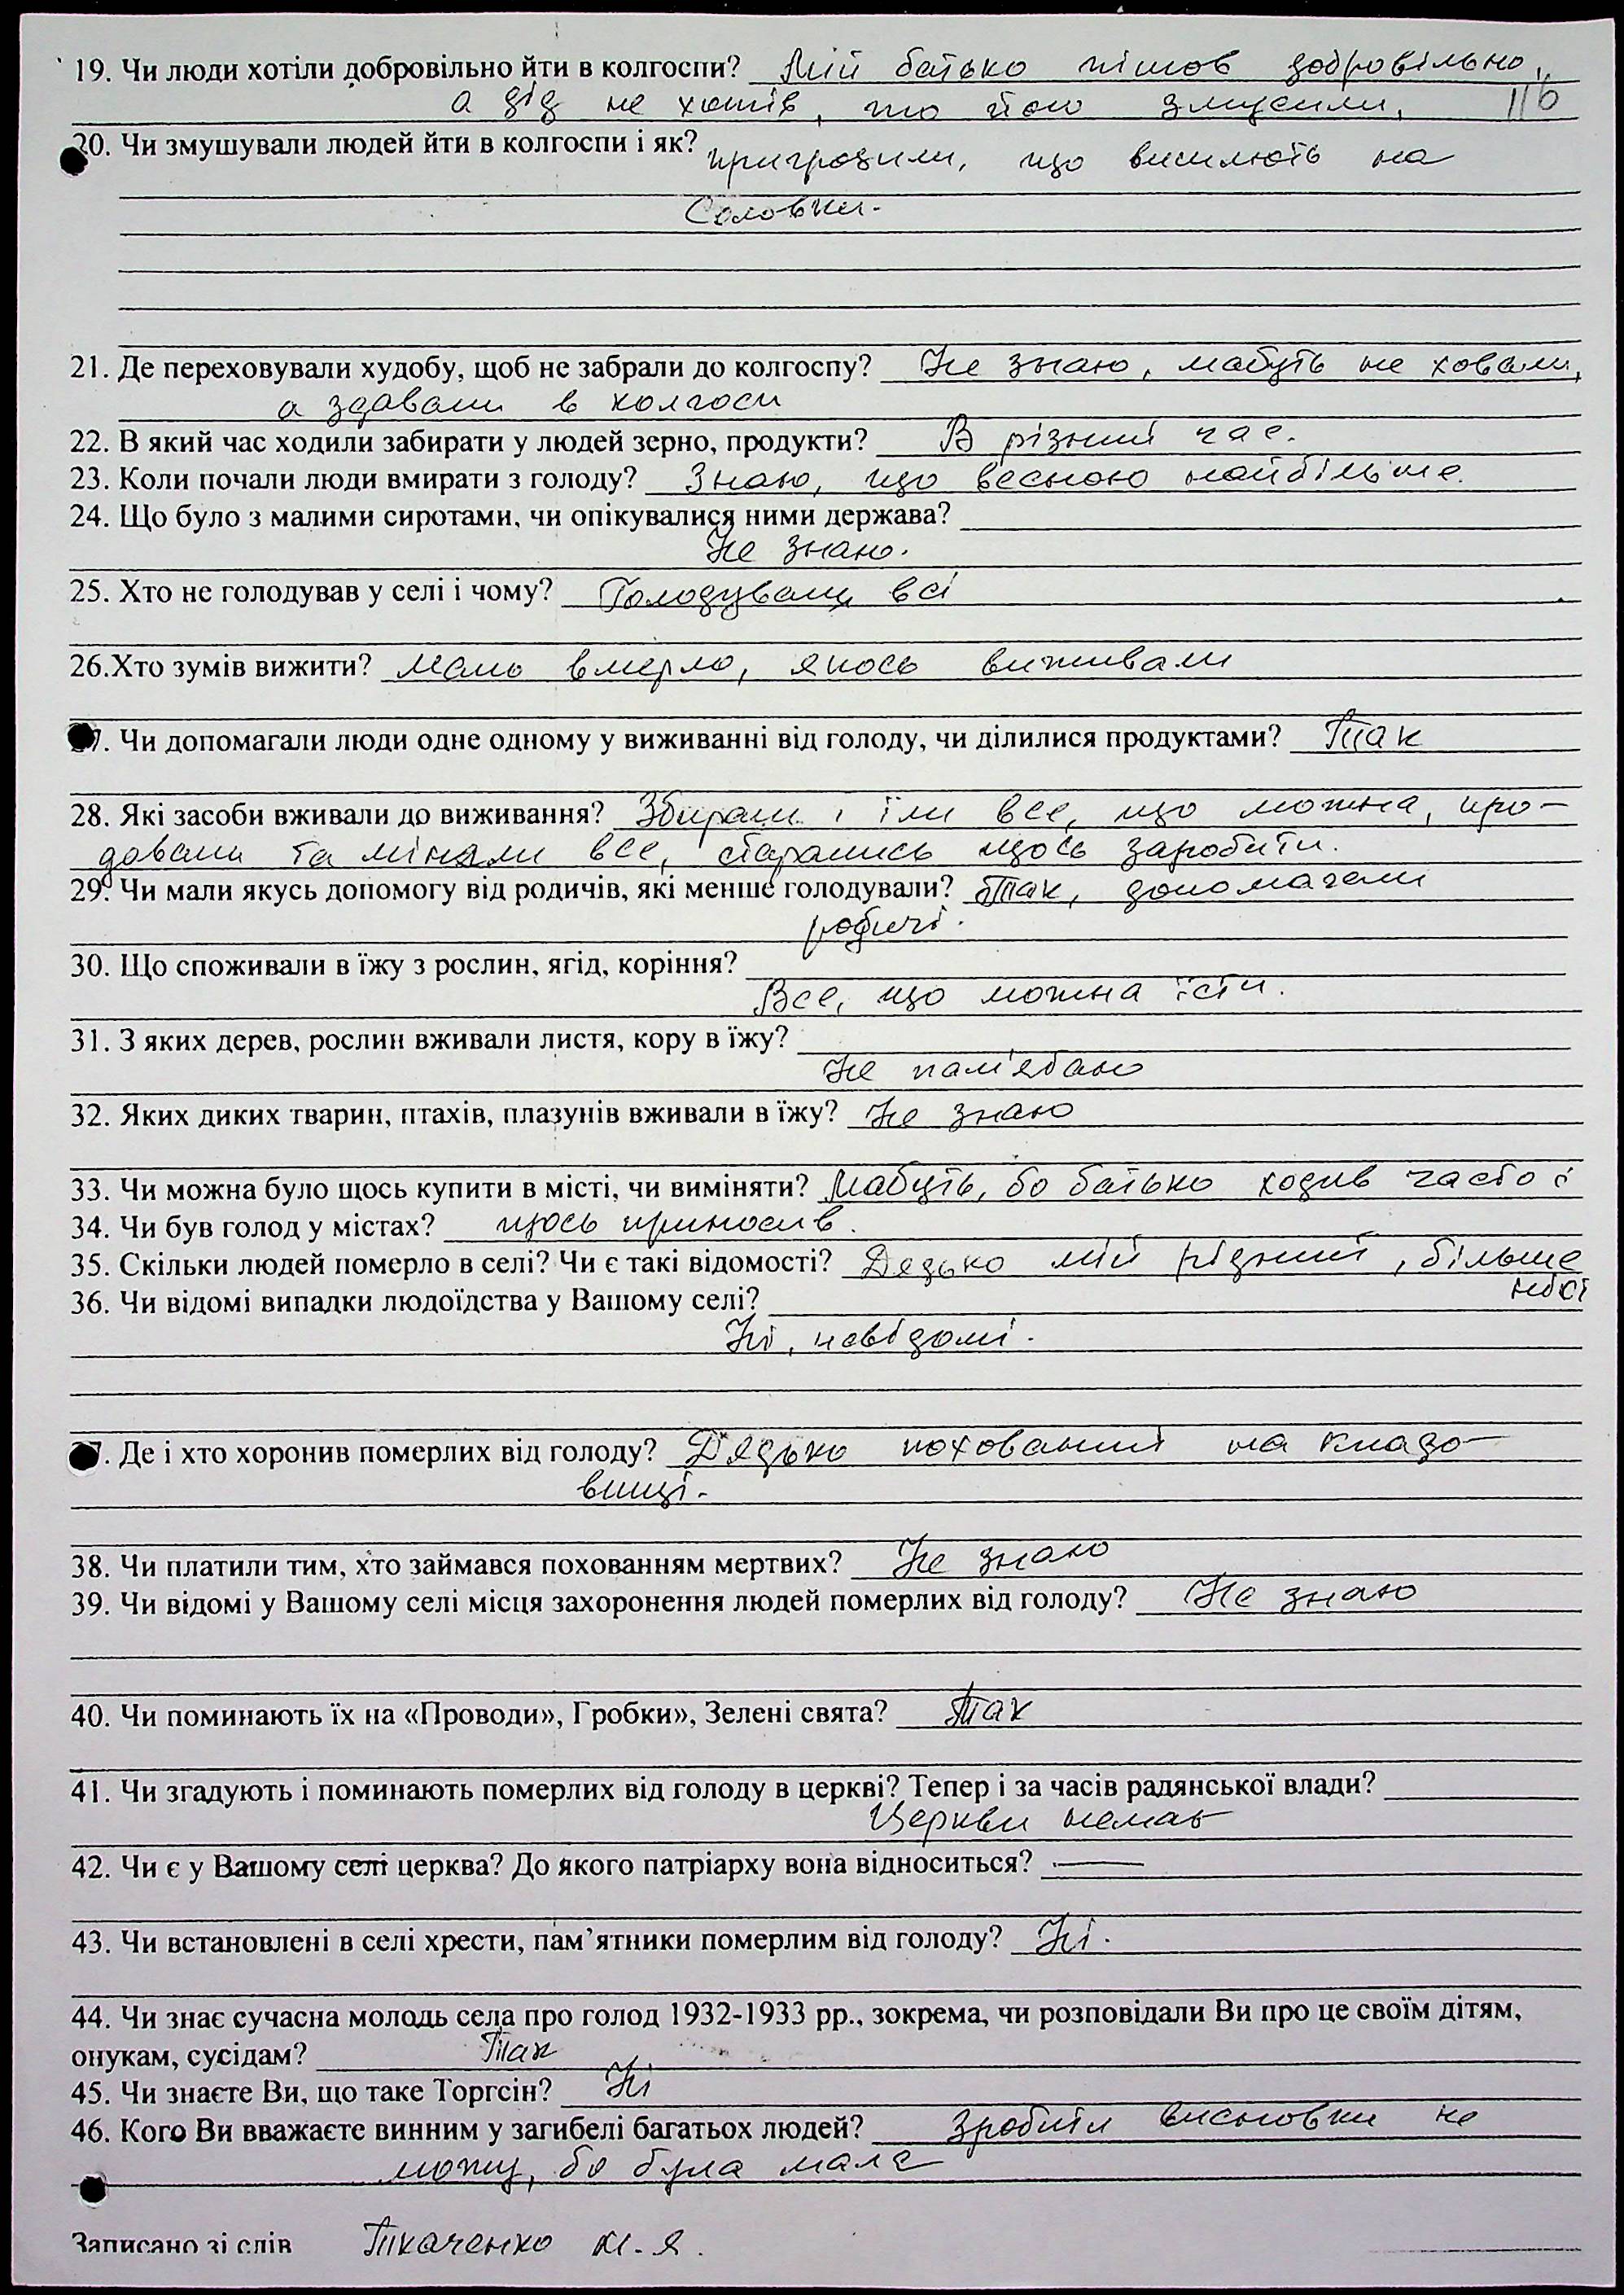 19. Чи люди хотіли добровільно йти в колгоспи? Мій батько пішов добровільно,
а дід не хотів, то його змусили. 116
20. Чи змушували людей йти в колгоспи і як? пригрозили, що вишлють на
Соловки.
21. Де переховували худобу, щоб не забрали до колгоспу? Не знаю, мабуть не ховали,
а здавали в колгосп
22. В який час ходили забирати у людей зерно, продукти? В різний час.
23. Коли почали люди вмирати з голоду? Знаю, що весною найбільше.
24. Що було з малими сиротами, чи опікувалися ними держава?
Не знаю.
25. Хто не голодував у селі і чому? Голодували всі
26.Хто зумів вижити? Мало вмерло, якось виживали
7. Чи допомагали люди одне одному у виживанні від голоду, чи ділилися продуктами? Так
28. Які засоби вживали до виживання? Збирали і їли все, що можна, про-
давали та міняли все, старались щось заробити.
29. Чи мали якусь допомогу від родичів, які менше голодували? Так, допомагали
родичі.
30. Що споживали в їжу з рослин, ягід, коріння?
Все, що можна їсти.
31. З яких дерев, рослин вживали листя, кору в їжу?
Не пам'ятаю
32. Яких диких тварин, птахів, плазунів вживали в їжу? Не знаю
33. Чи можна було щось купити в місті, чи виміняти? Мабуть, бо батько ходив часто і
34. Чи був голод у містах? щось приносив.
35. Скільки людей померло в селі? Чи є такі відомості? Дядько мій рідний, більше
36. Чи відомі випадки людоїдства у Вашому селі?
Ні, невідомі.
7. Де і хто хоронив померлих від голоду? Дядько похований на кладо-
вищі.
38. Чи платили тим, хто займався похованням мертвих? Не знаю
39. Чи відомі у Вашому селі місця захоронення людей померлих від голоду? Не знаю
40. Чи поминають їх на «Проводи», Гробки», Зелені свята? Так
41. Чи згадують і поминають померлих від голоду в церкві? Тепер і за часів радянської влади?
Церкви немає
42. Чи є у Вашому селі церква? До якого патріарху вона відноситься? —
43. Чи встановлені в селі хрести, пам’ятники померлим від голоду? Ні.
44. Чи знає сучасна молодь села про голод 1932-1933 рр., зокрема, чи розповідали Ви про це своїм дітям,
онукам, сусідам? Так
45. Чи знаєте Ви, що таке Торгсін? Ні
46. Кого Ви вважаєте винним у загибелі багатьох людей? Зробити висновки не
можу, бо була мала
Записано зі слів Ткаченко М.Я.